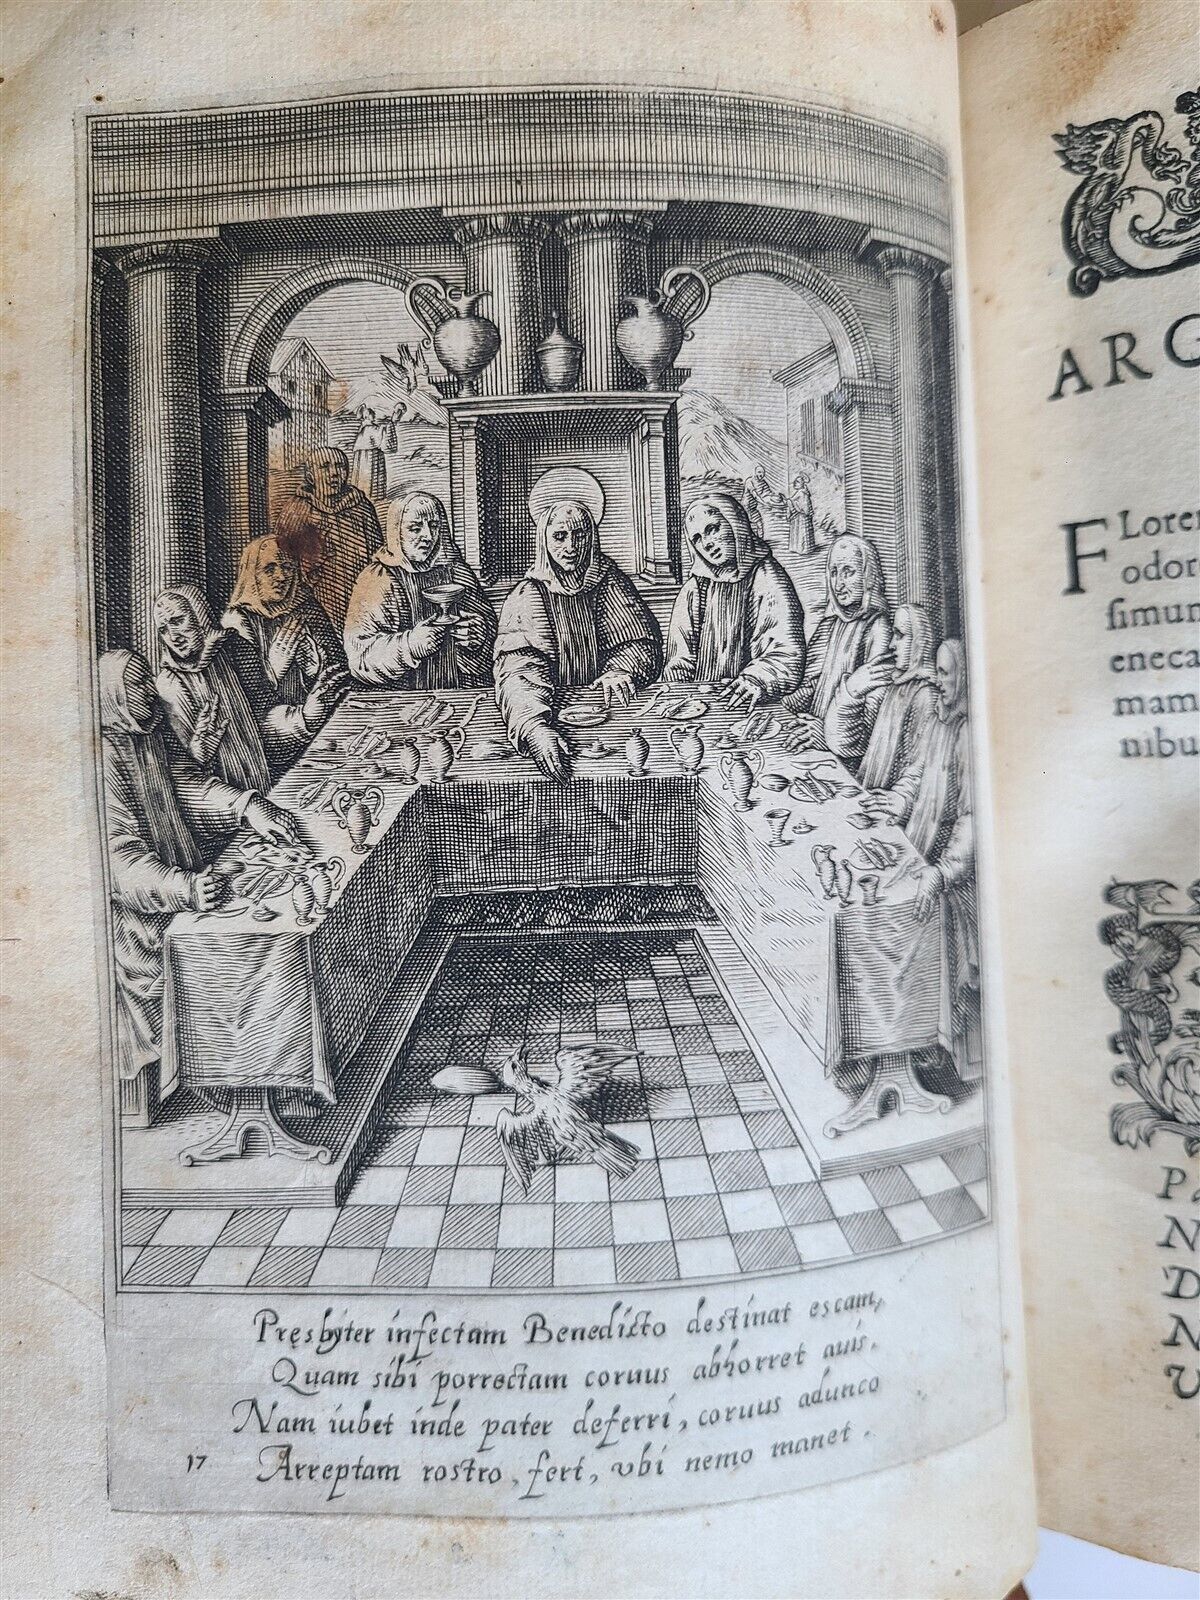 Pręsbyter infectam Benedicto destinat escam,
Quam sibi porrectam coruus abhorret auis.
Nam iubet inde pater deferri, coruus adunco
17 Arreptam rostro, fert, vbi nemo manet.
ARG
FLoren
odor
simun
eneca
mam
nibu
N
D
N